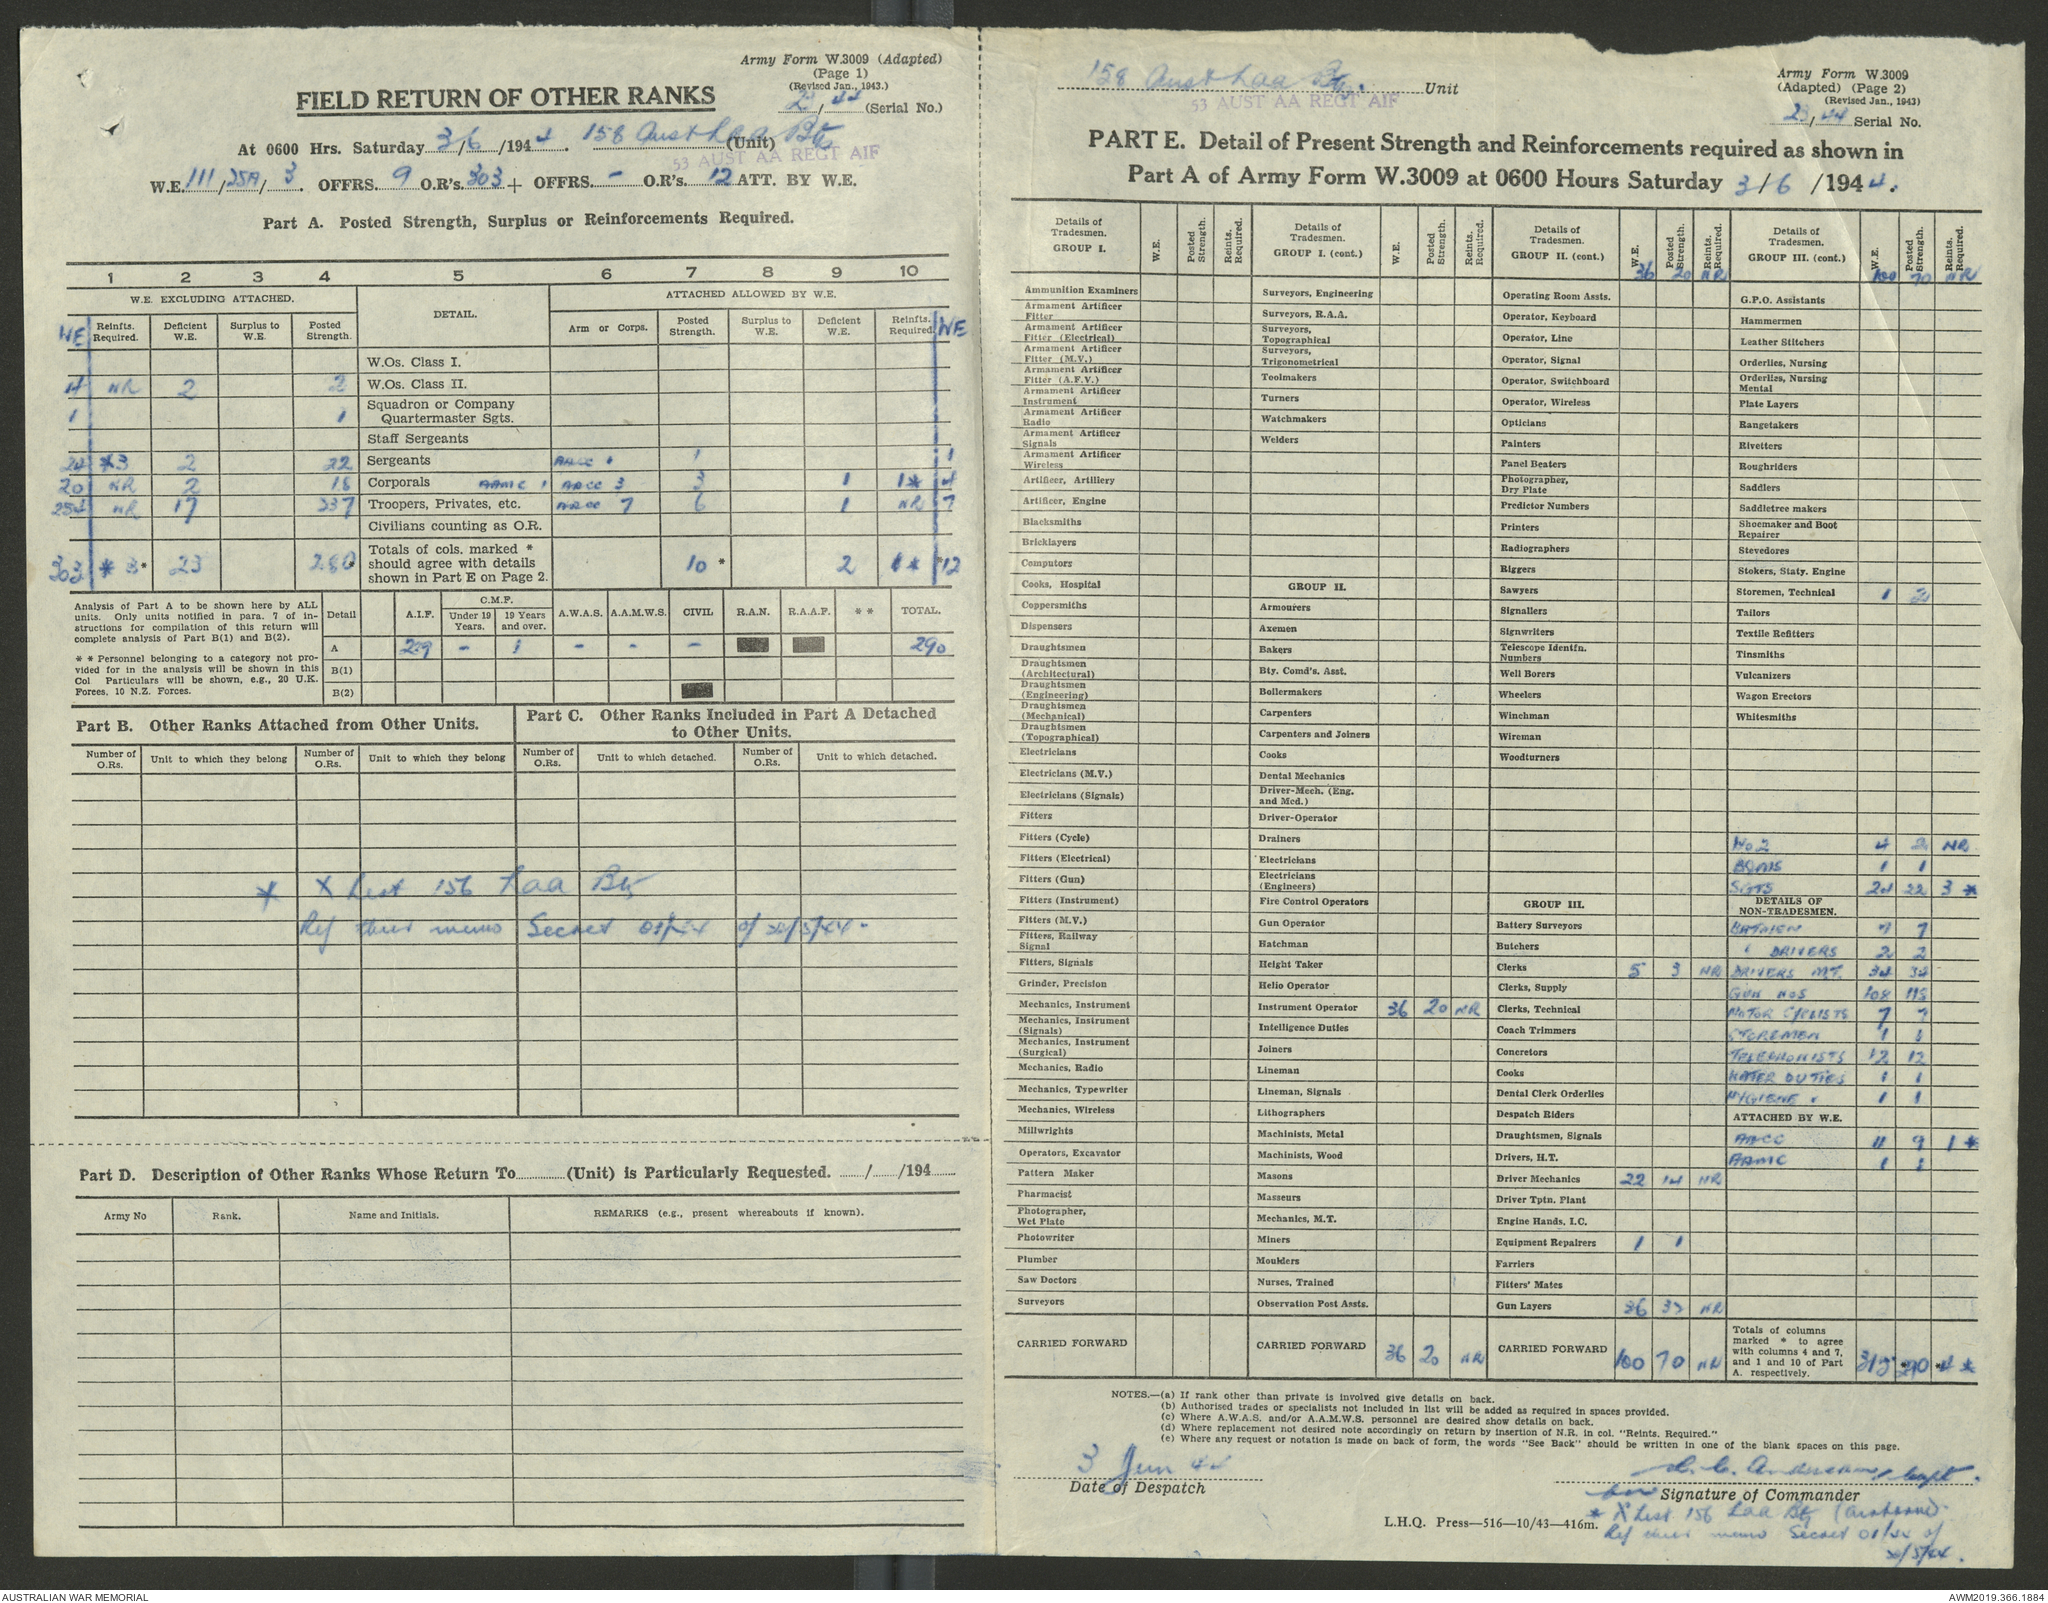 Army Form W.3009 (Adapted)
(Page 1)
(Revised Jan., 1943.)
FIELD RETURN OF OTHER RANKS
/44 (Serial No.)
At 0600 Hrs. Saturday 3/6/1944. 158 Aust Laa Bty (Unit)
53 AUST AA REGT AIF
W.E. 111/25A/3. OFFRS. 9 O.R's. 303 + OFFRS. - O.R's. 12 ATT. BY W.E.
Part A. Posted Strength, Surplus or Reinforcements Required.
1 2 3 4 5 6 7 8 9 10
W.E. EXCLUDING ATTACHED. DETAIL. ATTACHED ALLOWED BY W.E.
WE Reinfts. Required. Deficient W.E. Surplus to W.E. Posted Strength. Arm or Corps. Posted Strength. Surplus to W.E. Deficient W.E. Reinfts. Required WE
W.Os. Class I.
4 NR 2 2 W.Os. Class II.
1 1 Squadron or Company Quartermaster Sgts.
Staff Sergeants
24 *3 2 22 Sergeants AACC 1 1 1
20 NR 2 18 Corporals AAMC 1 AACC 3 3 1 1* 4
254 NR 17 237 Troopers, Privates, etc. AACC 7 6 1 NR 7
Civilians counting as O.R.
303 * 3* 23 280 Totals of cols. marked * should agree with details shown in Part E on Page 2. 10 * 2 1* *12
Analysis of Part A to be shown here by ALL units. Only units notified in para. 7 of instructions for compilation of this return will complete analysis of Part B(1) and B(2).
* * Personnel belonging to a category not provided for in the analysis will be shown in this Col Particulars will be shown, e.g., 20 U.K. Forces, 10 N.Z. Forces.
Detail A.I.F. C.M.F. Under 19 Years. 19 Years and over. A.W.A.S. A.A.M.W.S. CIVIL R.A.N. R.A.A.F. * * TOTAL.
A 289 - 1 - - - 290
B(1)
B(2)
Part B. Other Ranks Attached from Other Units.
Part C. Other Ranks Included in Part A Detached to Other Units.
Number of O.Rs. Unit to which they belong Number of O.Rs. Unit to which they belong Number of O.Rs. Unit to which detached. Number of O.Rs. Unit to which detached.
* X List 156 Laa Bty
Ref their memo Secret of /5/44.
Part D. Description of Other Ranks Whose Return To (Unit) is Particularly Requested. / /194
Army No Rank. Name and Initials. REMARKS (e.g., present whereabouts if known).
158 Aust Laa Bty. Unit
53 AUST AA REGT AIF
Army Form W.3009
(Adapted) (Page 2)
(Revised Jan., 1943)
/44 Serial No.
PART E. Detail of Present Strength and Reinforcements required as shown in
Part A of Army Form W.3009 at 0600 Hours Saturday 3/6/1944.
Details of Tradesmen. GROUP I. W.E. Posted Strength. Reints. Required.
Ammunition Examiners
Armament Artificer Fitter
Armament Artificer Fitter (Electrical)
Armament Artificer Fitter (M.V.)
Armament Artificer Fitter (A.F.V.)
Armament Artificer Instrument
Armament Artificer Radio
Armament Artificer Signals
Armament Artificer Wireless
Artificer, Artillery
Artificer, Engine
Blacksmiths
Bricklayers
Computors
Cooks, Hospital
Coppersmiths
Dispensers
Draughtsmen
Draughtsmen (Architectural)
Draughtsmen (Engineering)
Draughtsmen (Mechanical)
Draughtsmen (Topographical)
Electricians
Electricians (M.V.)
Electricians (Signals)
Fitters
Fitters (Cycle)
Fitters (Electrical)
Fitters (Gun)
Fitters (Instrument)
Fitters (M.V.)
Fitters, Railway Signal
Fitters, Signals
Grinder, Precision
Mechanics, Instrument
Mechanics, Instrument (Signals)
Mechanics, Instrument (Surgical)
Mechanics, Radio
Mechanics, Typewriter
Mechanics, Wireless
Millwrights
Operators, Excavator
Pattern Maker
Pharmacist
Photographer, Wet Plate
Photowriter
Plumber
Saw Doctors
Surveyors
CARRIED FORWARD
Details of Tradesmen. GROUP I. (cont.) W.E. Posted Strength. Reints. Required.
Surveyors, Engineering
Surveyors, R.A.A.
Surveyors, Topographical
Surveyors, Trigonometrical
Toolmakers
Turners
Watchmakers
Welders
GROUP II.
Armourers
Axemen
Bakers
Bty. Comd's. Asst.
Boilermakers
Carpenters
Carpenters and Joiners
Cooks
Dental Mechanics
Driver-Mech. (Eng. and Med.)
Driver-Operator
Drainers
Electricians
Electricians (Engineers)
Fire Control Operators
Gun Operator
Hatchman
Height Taker
Helio Operator
Instrument Operator 36 20 NR
Intelligence Duties
Joiners
Lineman
Lineman, Signals
Lithographers
Machinists, Metal
Machinists, Wood
Masons
Masseurs
Mechanics, M.T.
Miners
Moulders
Nurses, Trained
Observation Post Assts.
CARRIED FORWARD 36 20 NR
Details of Tradesmen. GROUP II. (cont.) W.E. Posted Strength. Reints. Required.
36 20 NR
Operating Room Assts.
Operator, Keyboard
Operator, Line
Operator, Signal
Operator, Switchboard
Operator, Wireless
Opticians
Painters
Panel Beaters
Photographer, Dry Plate
Predictor Numbers
Printers
Radiographers
Riggers
Sawyers
Signallers
Signwriters
Telescope Identfn. Numbers
Well Borers
Wheelers
Winchman
Wireman
Woodturners
GROUP III.
Battery Surveyors
Butchers
Clerks 5 3 NR
Clerks, Supply
Clerks, Technical
Coach Trimmers
Concretors
Cooks
Dental Clerk Orderlies
Despatch Riders
Draughtsmen, Signals
Drivers, H.T.
Driver Mechanics 22 14 NR
Driver Tptn. Plant
Engine Hands, I.C.
Equipment Repairers 1 1
Farriers
Fitters' Mates
Gun Layers 36 32 NR
CARRIED FORWARD 100 70 NR
Details of Tradesmen. GROUP III. (cont.) W.E. Posted Strength. Reints. Required.
100 70 NR
G.P.O. Assistants
Hammermen
Leather Stitchers
Orderlies, Nursing
Orderlies, Nursing Mental
Plate Layers
Rangetakers
Rivetters
Roughriders
Saddlers
Saddletree makers
Shoemaker and Boot Repairer
Stevedores
Stokers, Staty. Engine
Storemen, Technical 1 2
Tailors
Textile Refitters
Tinsmiths
Vulcanizers
Wagon Erectors
Whitesmiths
4 2 NR
BQMS 1 1
SGTS 24 22 3 *
DETAILS OF NON-TRADESMEN.
BATMEN 7 7
" DRIVERS 2 2
DRIVERS M.T. 34 34
GUN NOS 108 115
MOTOR CYCLISTS 7 7
STOREMEN 1 1
TELEPHONISTS 12 12
WATER DUTIES 1 1
HYGIENE " 1 1
ATTACHED BY W.E.
AACC 11 9 1 *
AAMC 1 1
Totals of columns marked * to agree with columns 4 and 7, and 1 and 10 of Part A. respectively. 315 *290 *4 *
NOTES.—(a) If rank other than private is involved give details on back.
(b) Authorised trades or specialists not included in list will be added as required in spaces provided.
(c) Where A.W.A.S. and/or A.A.M.W.S. personnel are desired show details on back.
(d) Where replacement not desired note accordingly on return by insertion of N.R. in col. "Reints. Required."
(e) Where any request or notation is made on back of form, the words "See Back" should be written in one of the blank spaces on this page.
3 Jun 44
Date of Despatch
Capt.
for Signature of Commander
L.H.Q. Press—516—10/43—416m.
* X List 156 Laa Bty
Ref their memo Secret of
/5/44.
AUSTRALIAN WAR MEMORIAL
AWM2019.366.1884